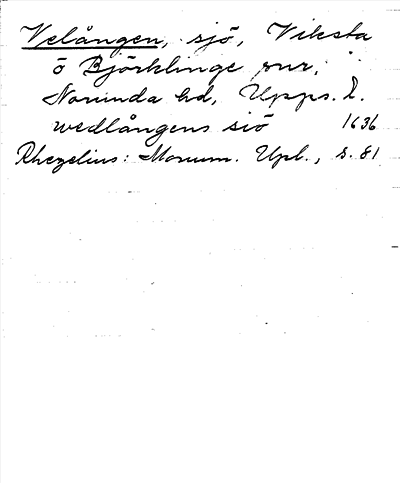 Velången, sjö, Viksta
o Björklinge snr,
Norunda hd, Upps. l.
wedlångens siö 1636
Rhezelius: Monum. Upl., s. 81